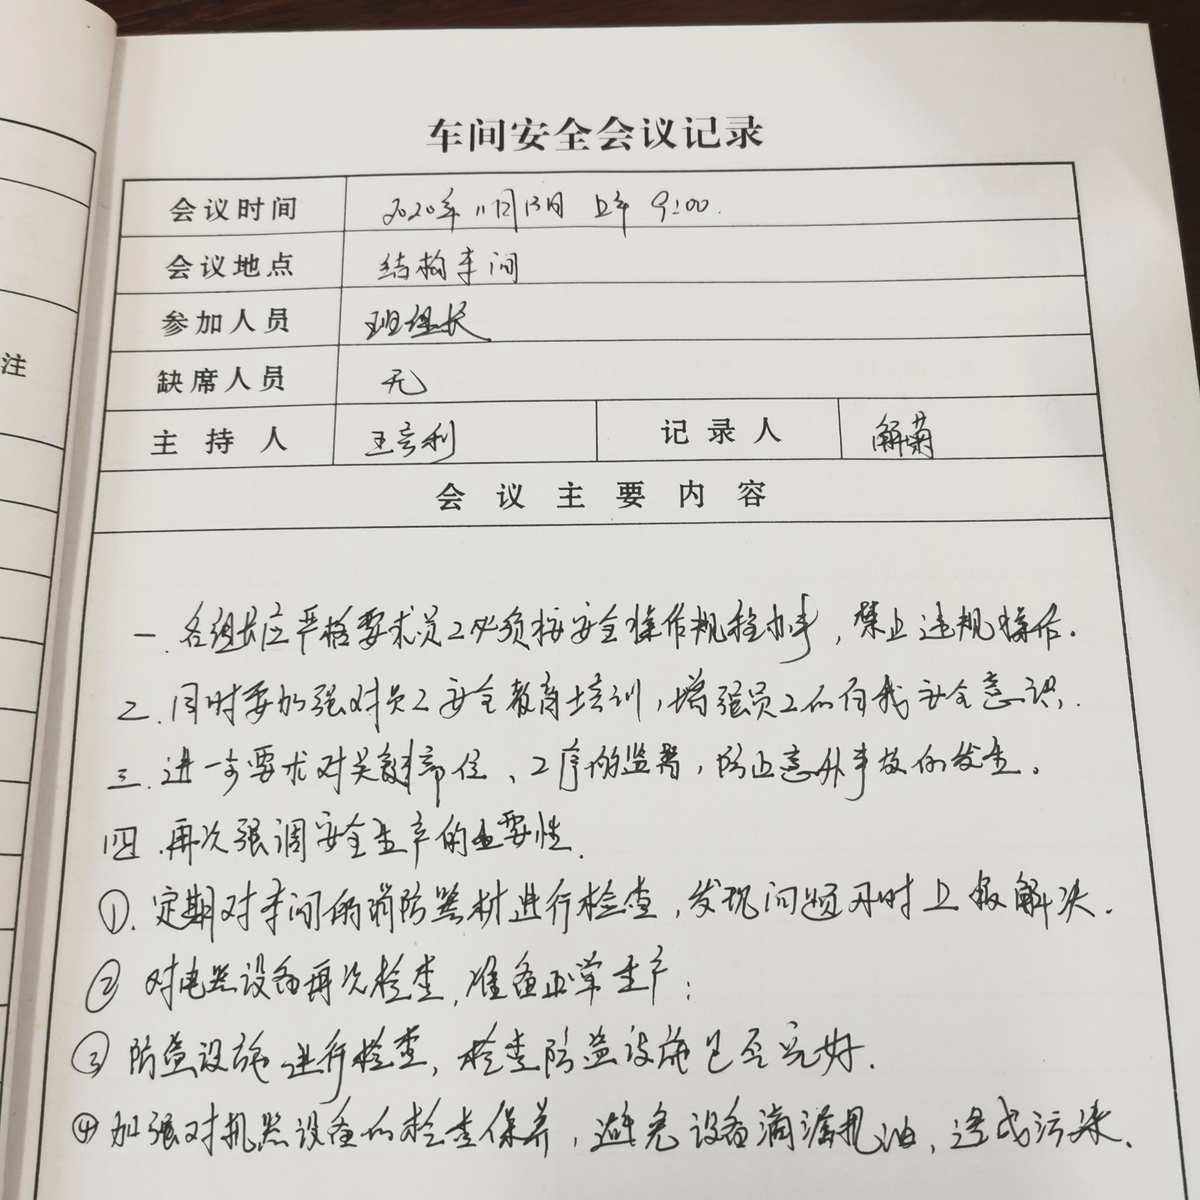 车间安全会议记录
注
会议时间 2020年11月13日 上午 9:00.
会议地点 结构车间
参加人员 班组长
缺席人员 无
主持人 王利 记录人 解菊
会议主要内容
一.各组长应严格要求员工必须按安全操作规程办事,禁止违规操作.
二.同时要加强对员工安全教育培训,增强员工的自我安全意识,.
三.进一步要求对关键部位、工序的监督,防止意外事故的发生。
四.再次强调安全生产的重要性.
①.定期对车间的消防器材进行检查,发现问题及时上报解决.
② 对电器设备再次检查,准备正常生产;
③ 防盗设施进行检查,检查防盗设施是否完好.
④ 加强对机器设备的检查保养,避免设备滴漏油,造成污染.